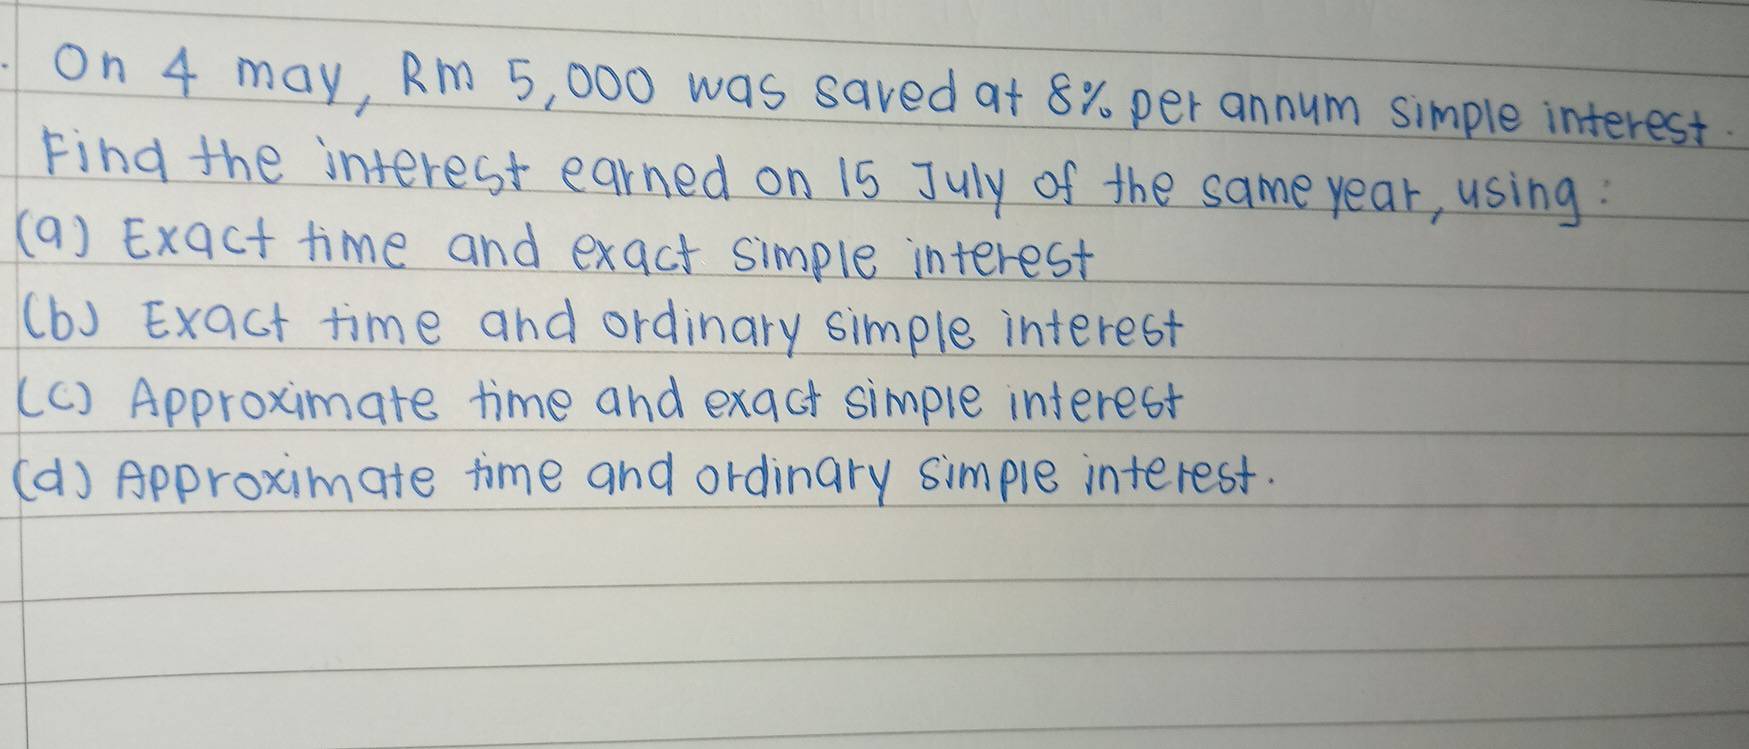 On 4 may, Rm 5,000 was saved at 8% per annum simple interest.
Find the interest earned on 15 July of the same year, using:
(a) Exact time and exact simple interest
(b) Exact time and ordinary simple interest
(c) Approximate time and exact simple interest
(d) Approximate time and ordinary simple interest.